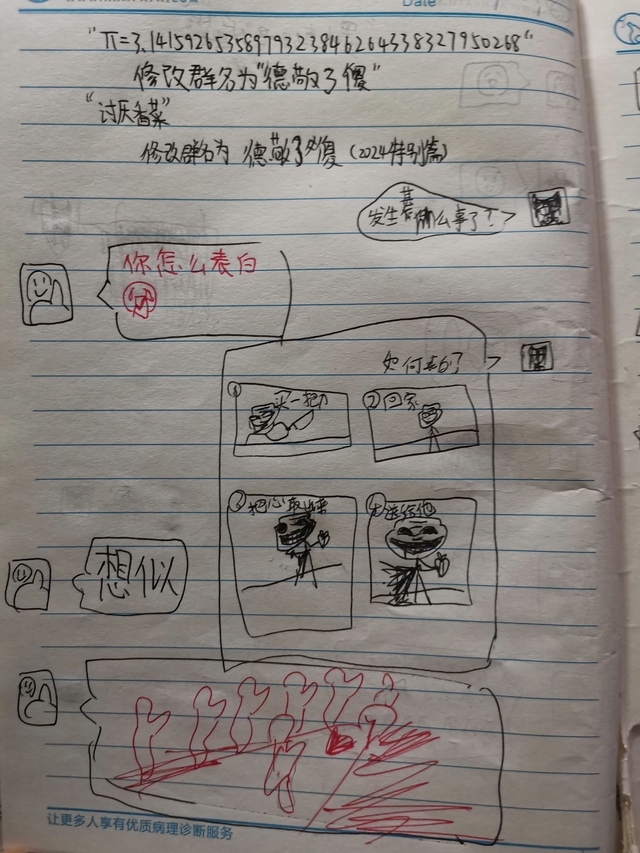 Date
"π=3.14159265358979323846264338327950268"
修改群名为"德敬了傻"
"讨厌香菜"
修改群名为 德敬了傻 (2024特别篇)
发生甚么事了?
你怎么表白
如何表白
①买一把刀
②回家
③把心取出来
④送给他
想似
让更多人享有优质病理诊断服务